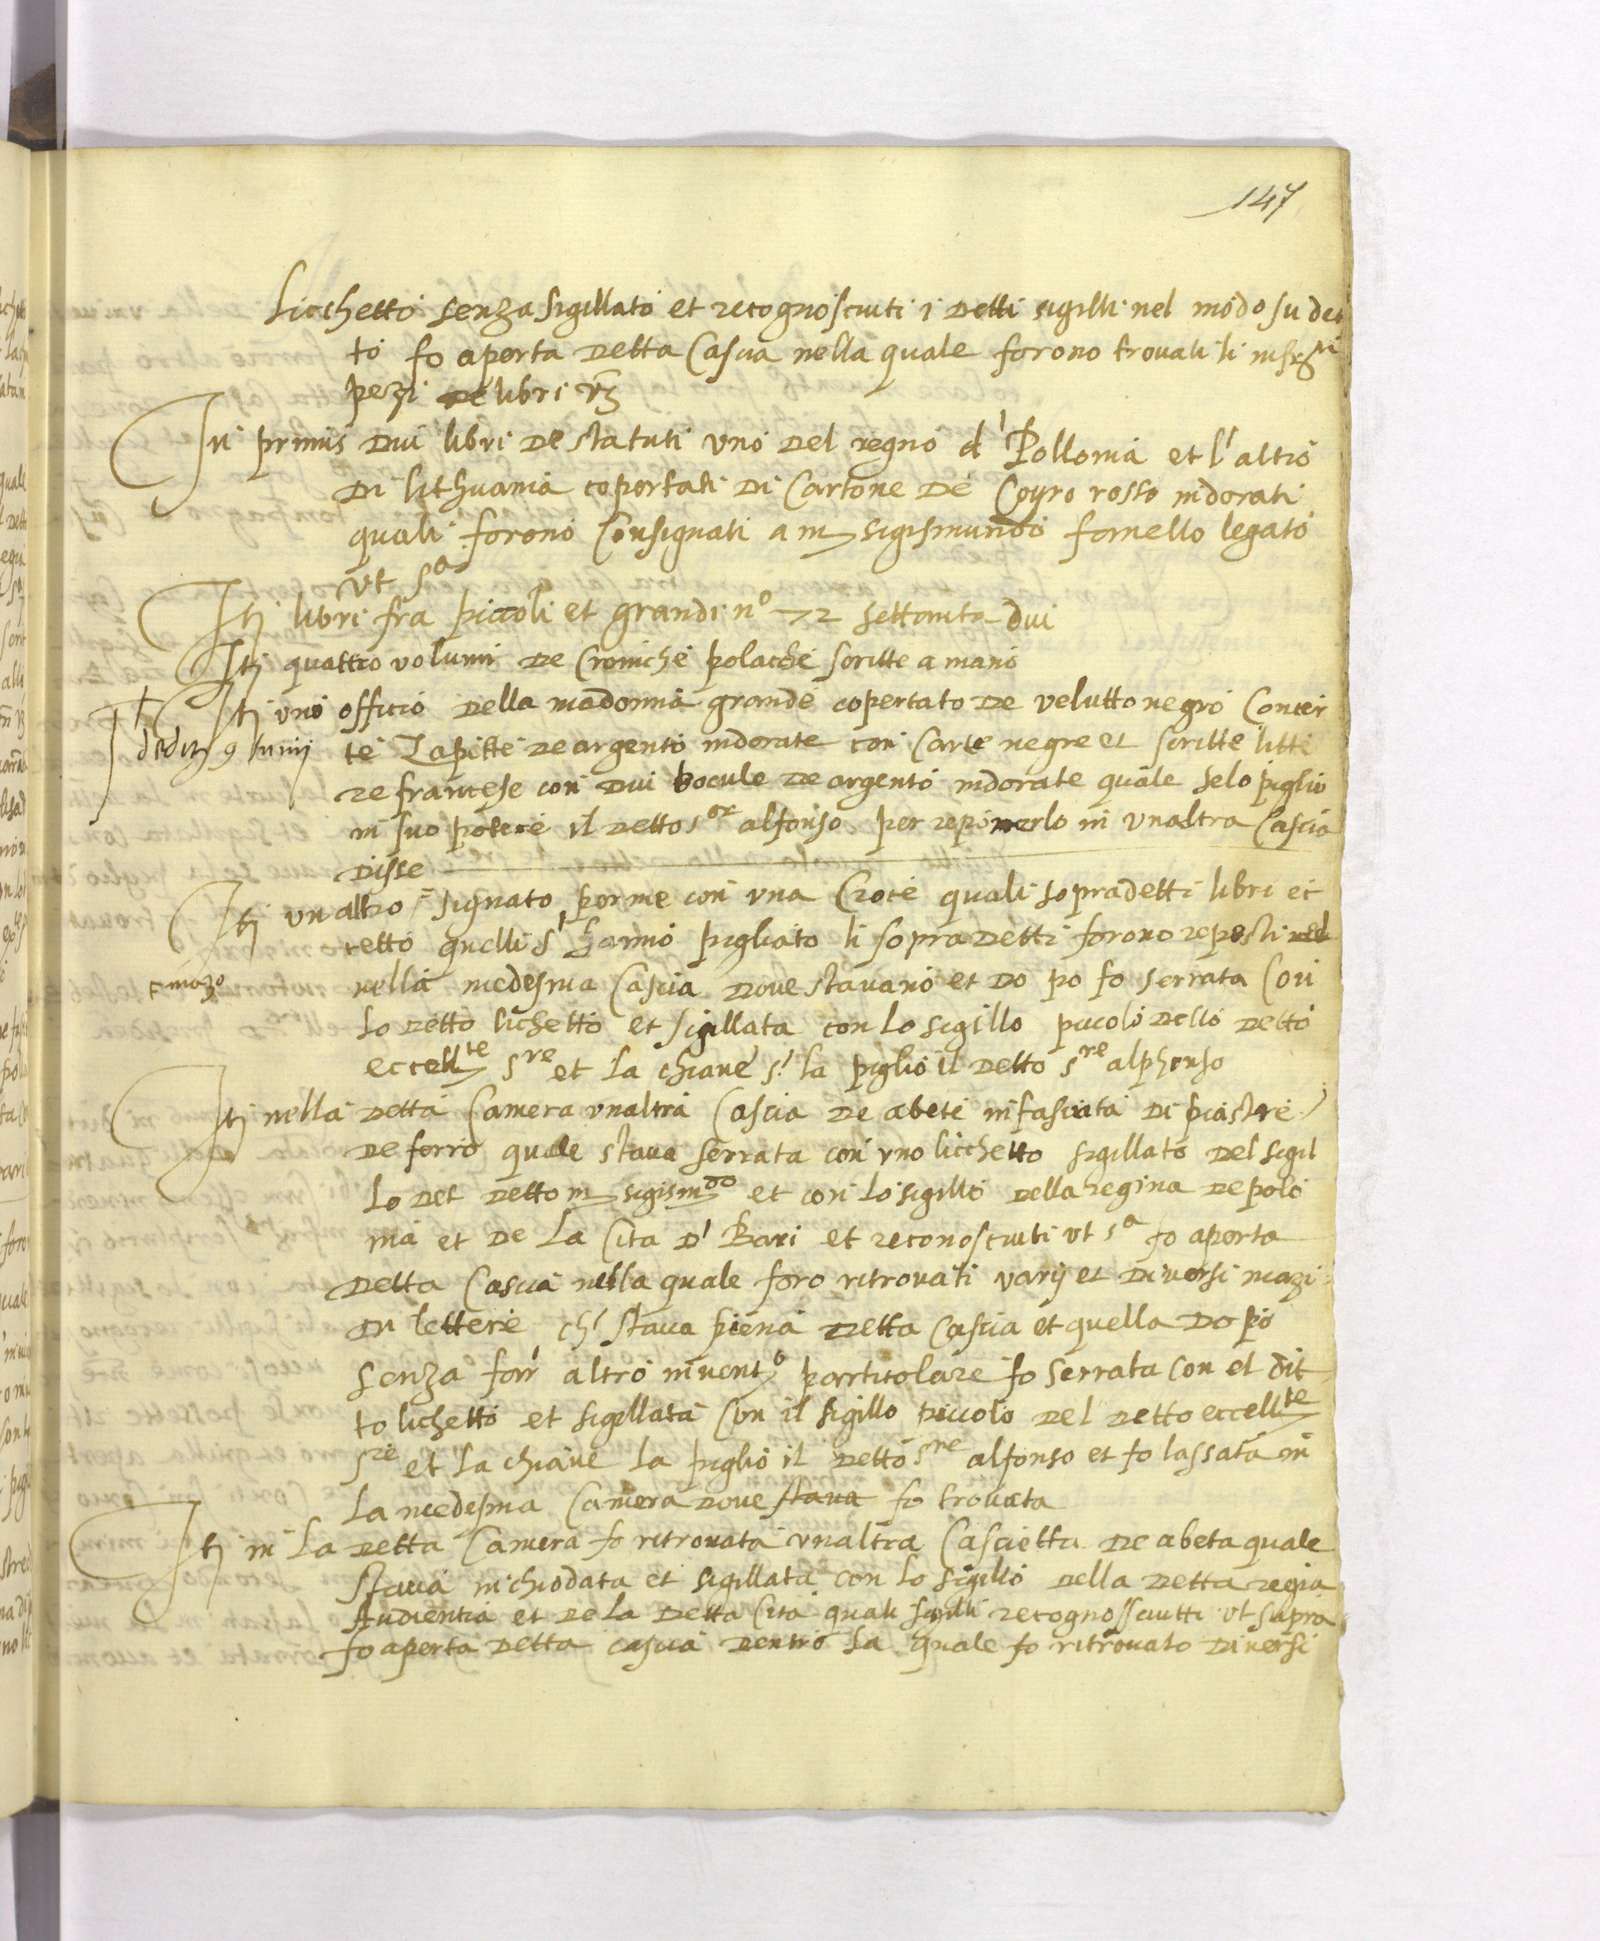 147
Licchetto senza sigillato et recognosciuti i detti sigilli nel modo su det
to fo aperta detta Cascia nella quale forono trovati li infrti
pezi de libri vz
In primis dui libri de statuti uno del regno d' Pollonia et l' altro
di lithuania copertati di Cartone de Coyro rosso indorati
quali forono Consignati a m sigismundo fanello legato
ut sa
Itj libri fra piccoli et grandi no 72 settanta dui
Itj quattro volumi de Croniche polache scritte a mano
Itj uno officio della madonna grande copertato de velutto negro Concer
te Zapitte de argento indorate con Carte negre et scritte litte
re francese con dui bocule de argento indorate quale selo piglio
in suo potere il detto sor alfonso per reponerlo in unaltra Cascia
disse
Itj un altro signato per me con una Croce quali sopradetti libri ec
cetto quelli s' hanno pigliato li sopradetti forono reposti nel
nella medesma Cascia dove stavano et do po fo serrata Con
mazo
lo detto lichetto et sigillata con lo sigillo picolo dello detto
eccellte sre et la chiave s' la piglio il detto sre alphonso
Itj nella detta Camera unaltra Cascia de abete infasciata di piastre
de ferro quale stava serrata con uno licchetto sigillato del sigil
lo del detto m sigismdo et con lo sigillo della regina de polo
nia et de la Cita d' Bari et reconosciuti ut sa fo aperta
detta Cascia nella quale foro ritrovati varij et diversi mazi
di lettere ch' stava piena detta Cascia et quella do po
senza farr' altro inventо particolare fo serrata con el dit
to lichetto et sigillata con il sigillo picolo del detto eccellte
sre et la chiave la piglio il detto sre alfonso et fo lassata in
la medesma Camera dove stava fo trovata
Itj in la detta Camera fo ritrovata unaltra Cascietta de abeta quale
stava inchiodata et sigillata con lo sigillo della detta regia
Audientia et de la detta Cita quali sigilli recognossciutti ut supra
fo aperta detta cascia dentro la quale fo ritrovato diversi